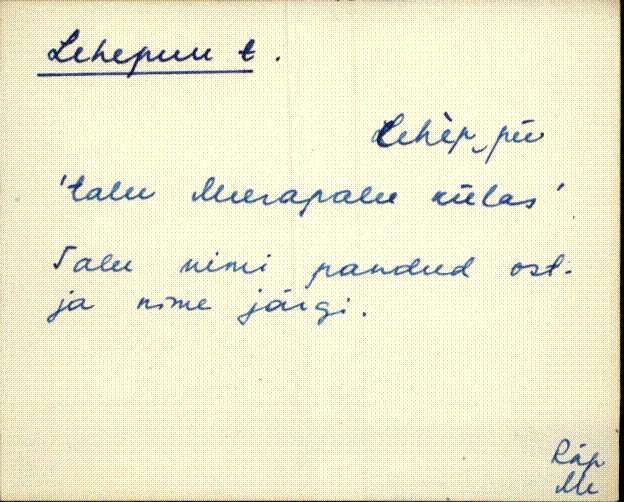 Lehepuu t.
Lehèp, pū
'talu Meerapalu külas'
Talu nimi pandud ost-
ja nime järgi.
Räp
Me